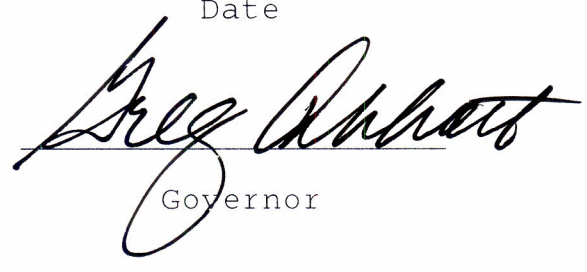 Date
Greg Abbott
Governor